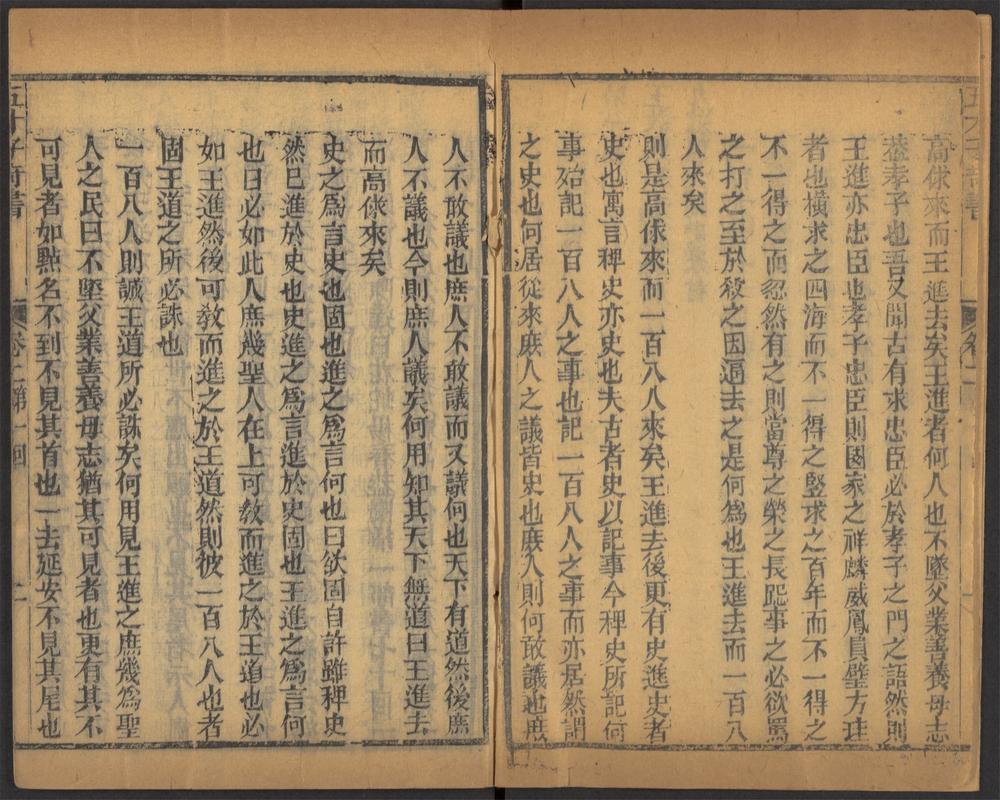 高俅來而王進去矣王進者何人也不墜父業善養母志
葢孝子也吾又聞古有求忠臣必於孝子之門之語然則
王進亦忠臣也孝子忠臣則國家之祥麟威鳳員璧方珪
者也橫求之四海而不一得之竪求之百年而不一得之
不一得之而忽然有之則當尊之榮之長跽事之必欲罵
之打之至於殺之因逼去之是何爲也王進去而一百八
人來矣
則是高俅來而一百八人來矣王進去後更有史進史者
史也寓言稗史亦史也夫古者史以記事今稗史所記何
事殆記一百八人之事也記一百八人之事而亦居然謂
之史也何居從來庶人之議皆史也庶人則何敢議也庶
人不敢議也庶人不敢議而又議何也天下有道然後庶
人不議也今則庶人議矣何用知其天下無道曰王進去
而高俅來矣
史之爲言史也固也進之爲言何也曰欲固自許雖稗史
然已進於史也史進之爲言進於史固也王進之爲言何
也曰必如此人庶幾聖人在上可敎而進之於王道也必
如王進然後可敎而進之於王道然則彼一百八人也者
固王道之所必誅也
一百八人則誠王道所必誅矣何用見王進之庶幾爲聖
人之民曰不墜父業善養母志猶其可見者也更有其不
可見者如點名不到不見其首也一去延安不見其尾也
五才子奇書 卷二第一回 二